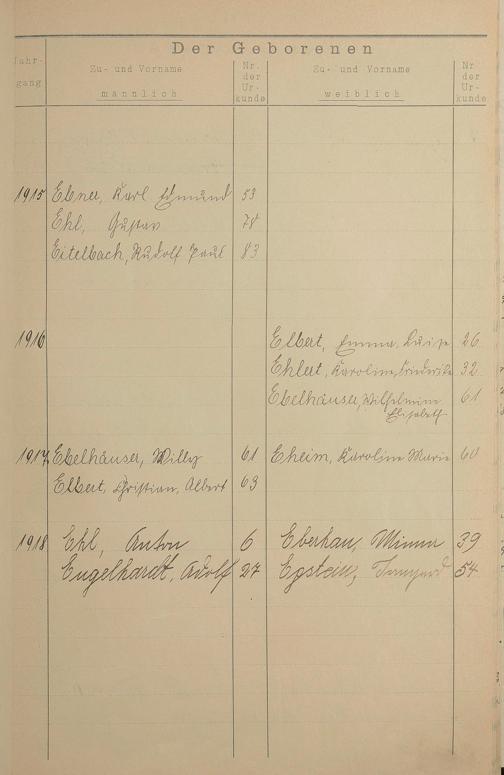 Der Geborenen
Jahr-
gang
Zu- und Vorname
männlich
Nr.
der
Ur-
kunde
Zu- und Vorname
weiblich
Nr
der
Ur-
kunde
1915 Ebner, Karl Edmund 53
Ehl, Gustav 78
Eitelbach, Rudolf Paul 83
1916 Elbert, Emma Luise 26
Ehlert, Karoline, Friederike 32
Ebelhäuser, Wilhelmine 61
Elisabeth
1917 Ebelhäuser, Willy 61 Eheim, Karoline Marie 60
Elbert, Christian, Albert 63
1918 Ehl, Anton 6 Eberhau, Minna 39
Engelhardt, Adolf 27 Egstein, Irmgard 54